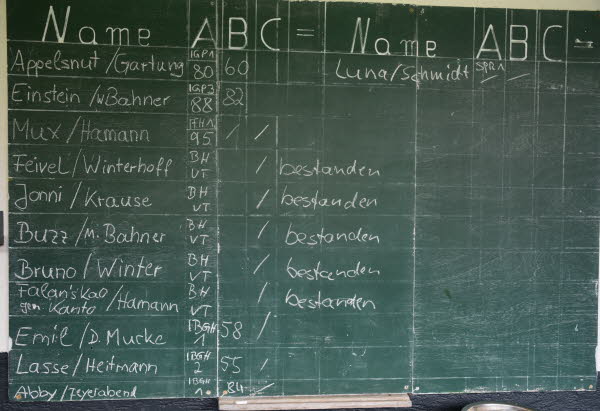 Name A B C = Name A B C =
Appelsnut/Gartung IGP1 80 60 Luna/Schmidt SPR1 / /
Einstein/W.Bahner IGP3 88 82
Mux/Hamann FH1 95 / /
Feivel/Winterhoff BH VT / bestanden
Jonni/Krause BH VT / bestanden
Buzz/M.Bahner BH VT / bestanden
Bruno/Winter BH VT / bestanden
Falan's Kao gen Kanto/Hamann BH VT / bestanden
Emil/D.Murke IBGH 1 58 /
Lasse/Heitmann IBGH 2 55 /
Abby/Feyerabend IBGH 1 84 /